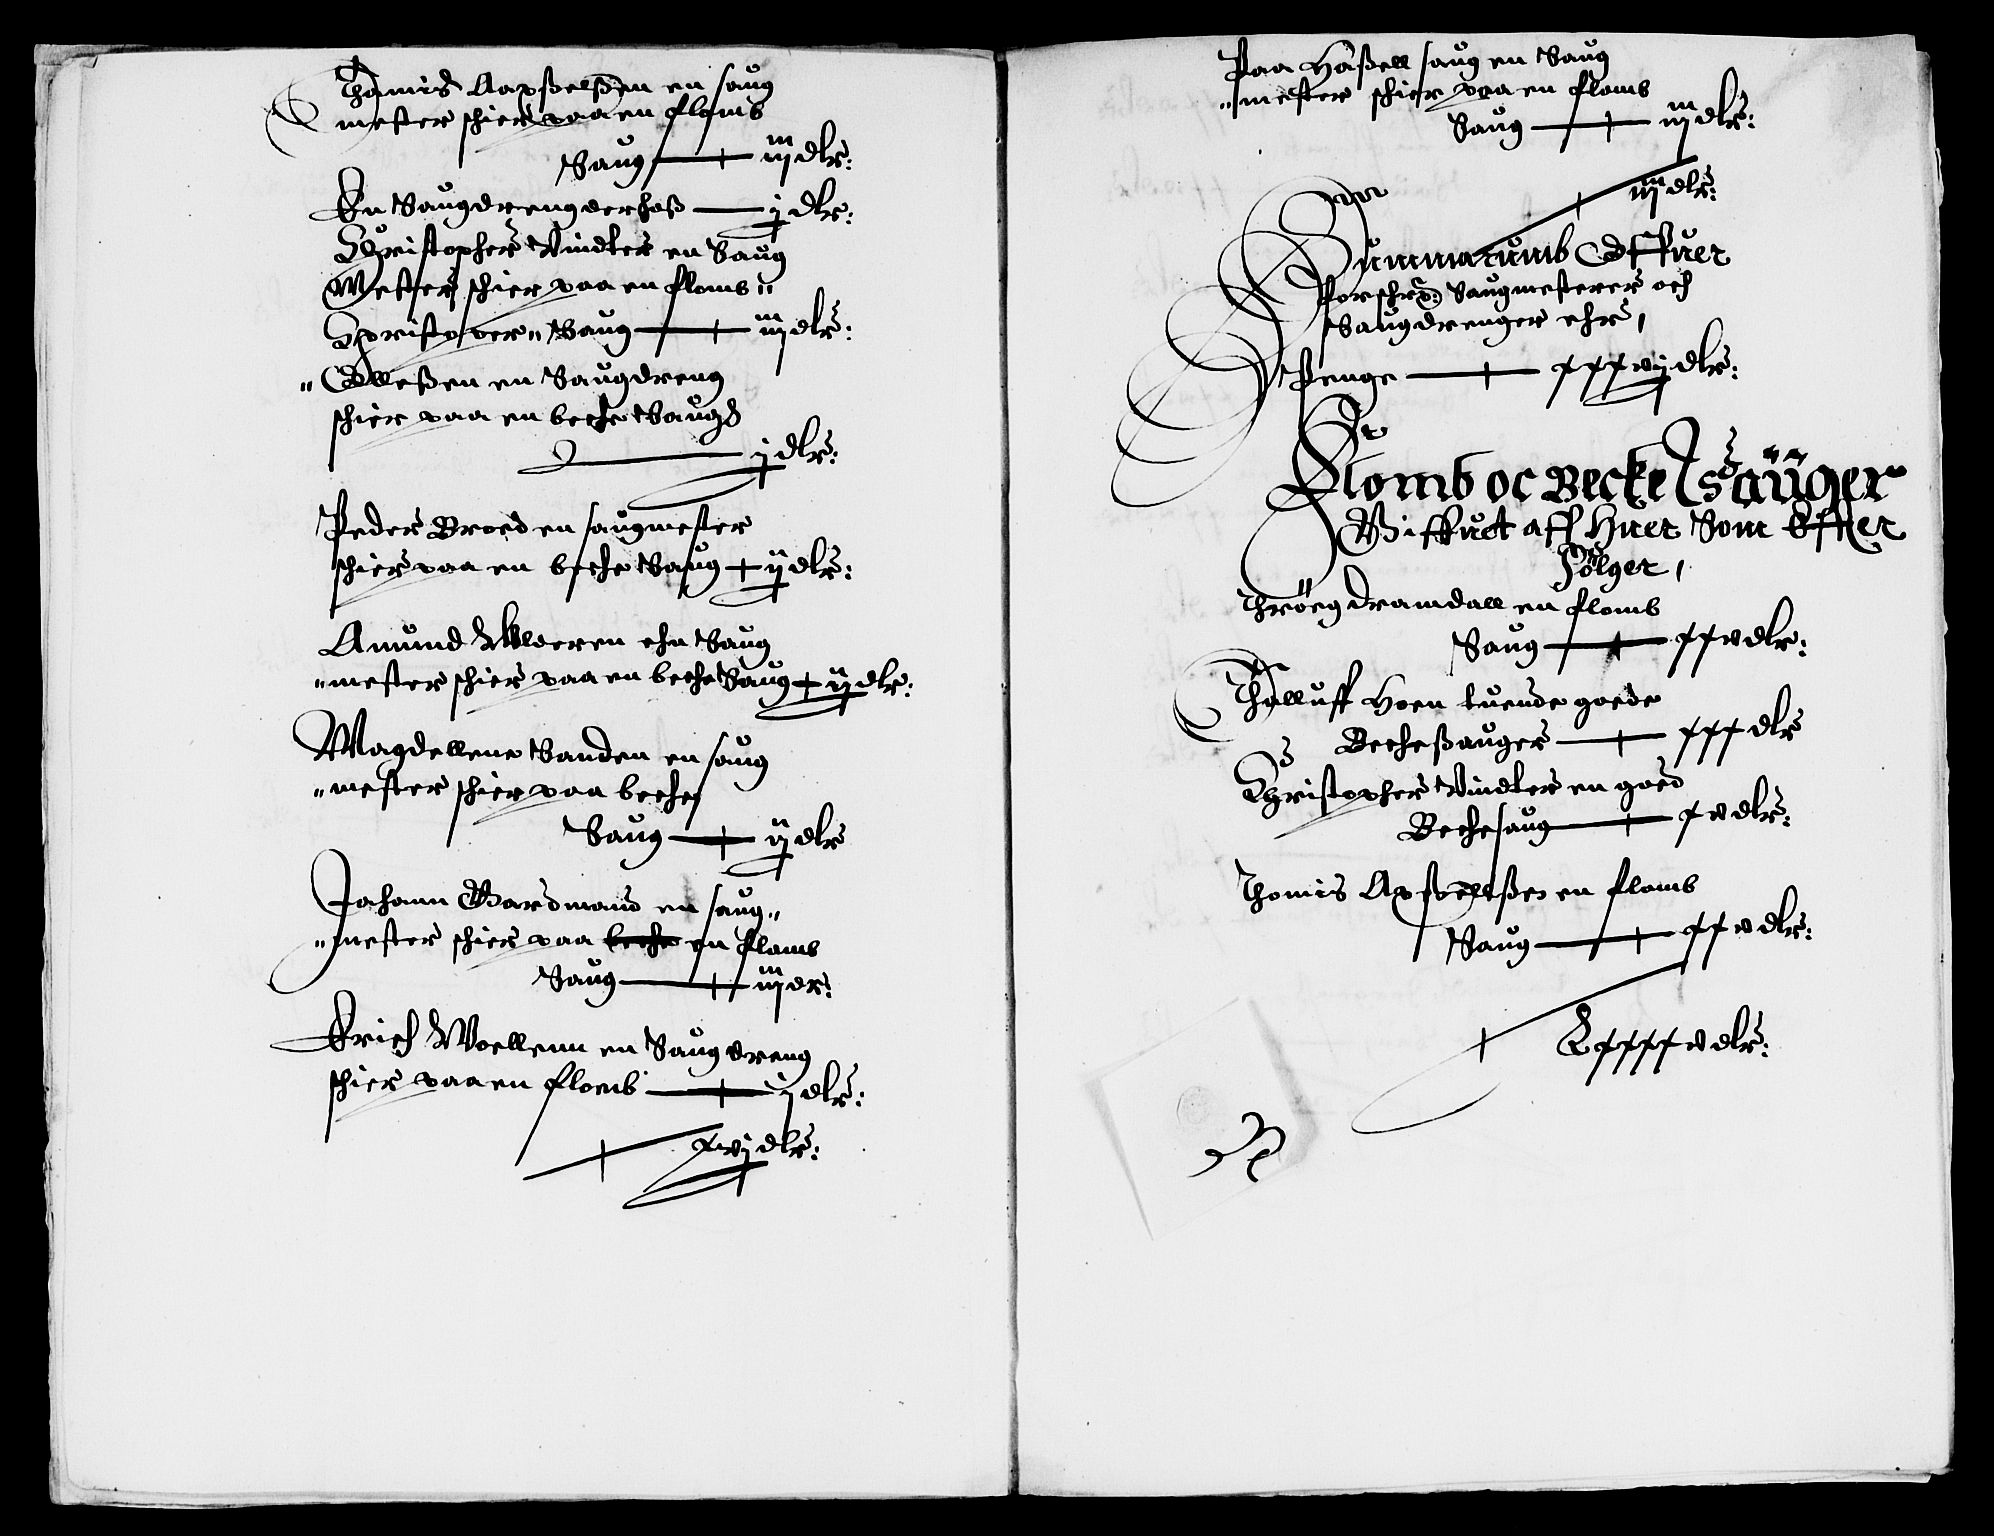 Thamis Aaxßelßen en saug
mester schier paa en flomb
Saug — iij dlr:
En Saugdreng derhoß — j dlr:
Christopher Vindler en Saug
Mester schier paa en flomb"
Christoper" Saug — iij dlr:
"Elleßen en Saugdreng
schier paa en becke Saug
— j dlr:
Peder Broed en saugmester
schier paa en becke Saug — ij dlr:
Amund en Saug
"mester schier paa en becke Saug — ij dlr:
Magdellene Sanden en saug
"mester schier paa becke
Saug — ij dlr
Johann Gardmand en saug"
"mester schier paa becke en flomb
Saug — iij dr:
Erich Woellenn en Saugdreng
schier paa en flomb — j dlr:
xvij dlr:
Paa Haßell saug en Saug
"mester schier paa en flomb
Saug — iij dlr:
iij dlr:
Summarumb Offuer
Forschr: Saugmesterer och
Saugdrenger ehr,
Penge — xxxvij dlr:
Flomb oc Becke Sauger
Giffuet aff Huer Som Efter
Følger,
Thröeg dramdall en flomb
Saug — xxv dlr:
Thalluff Hoen tuende goede
Beckeßauger — xxx dlr
Christopher Vindler en goed
Beckesaug — xv dlr:
Thomis Axßellßen en flomb
Saug — xxv dlr:
Lxxxxv dlr: